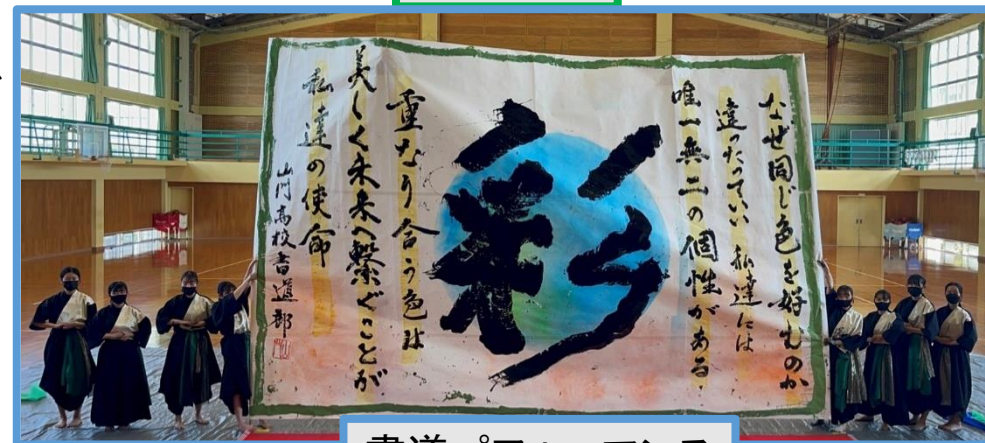 なぜ同じ色を好むのか
違ったっていい 私達には
唯一無二の個性がある
彩
重なり合う色は
美しく未来へ繋ぐことが
私達の使命
山門高校書道部
書道パフォーマンス